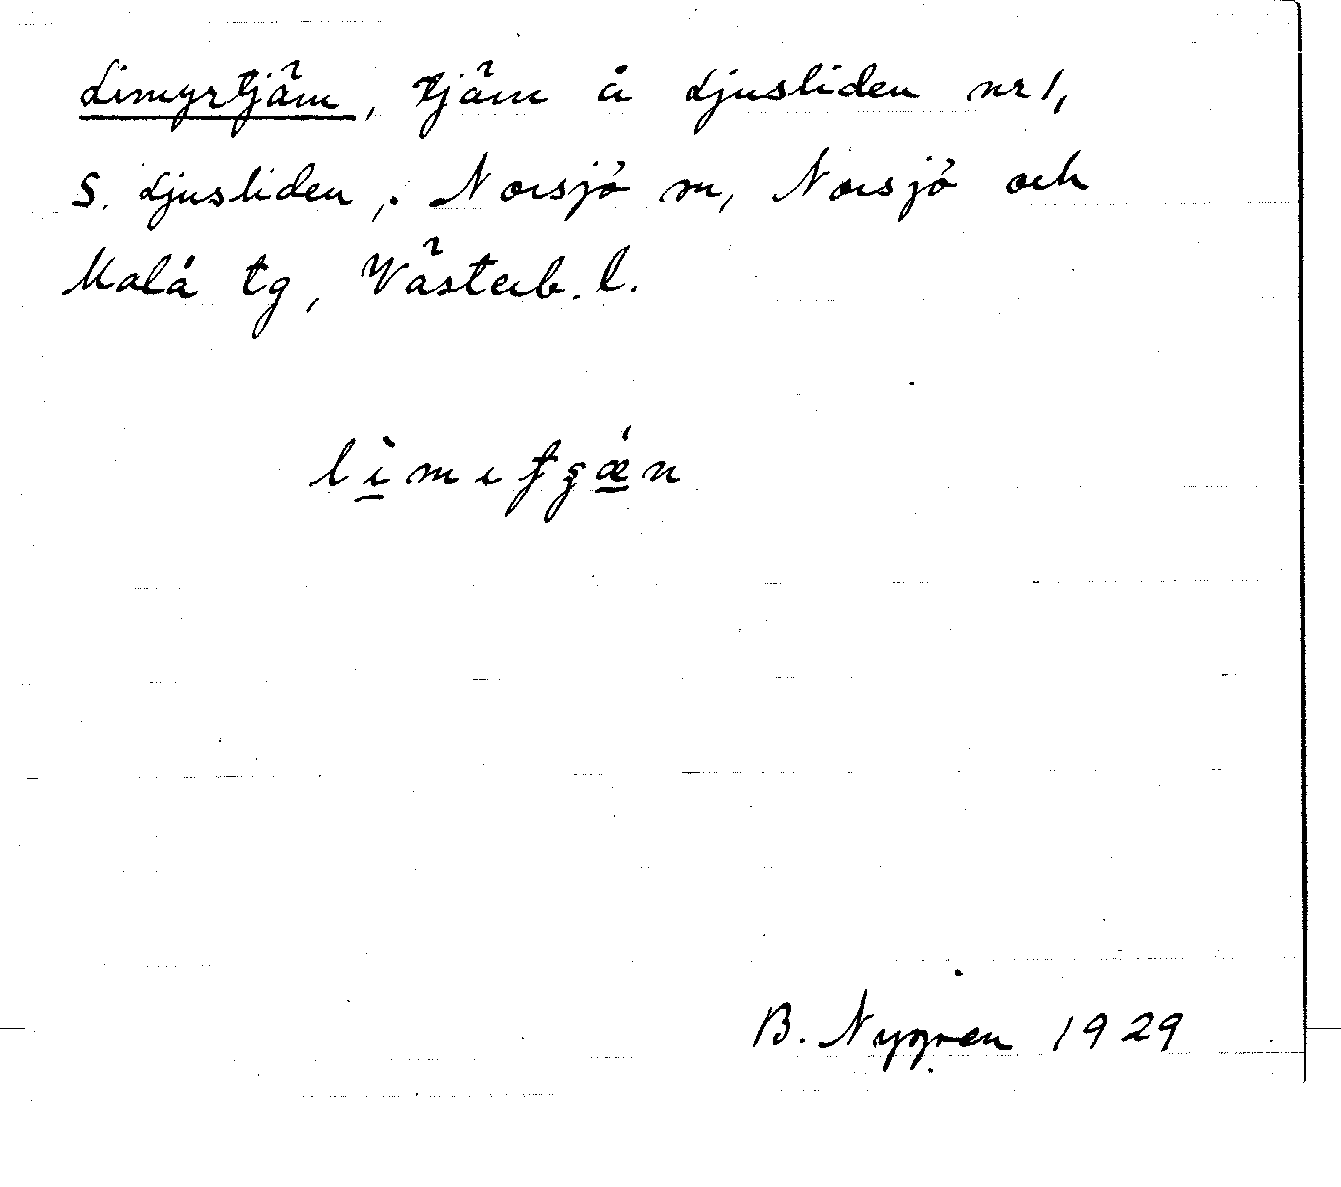 Limyrtjärn, tjärn å Ljusliden nr 1,
S. Ljusliden, Norsjö sn, Norsjö och
Malå tg, Västerb. l.
B. Nygren 1929